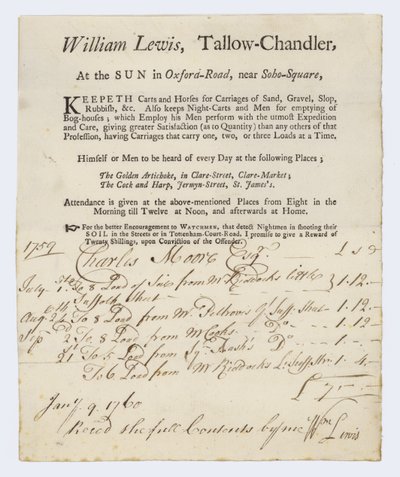 William Lewis, Tallow-Chandler,
At the SUN in Oxford-Road, near Soho-Square,
KEEPETH Carts and Horses for Carriages of Sand, Gravel, Slop,
Rubbish, &c. Also keeps Night-Carts and Men for emptying of
Bog-houses; which Employ his Men perform with the utmost Expedition
and Care, giving greater Satisfaction (as to Quantity) than any others of that
Profession, having Carriages that carry one, two, or three Loads at a Time.
Himself or Men to be heard of every Day at the following Places;
The Golden Artichoke, in Clare-Street, Clare-Market;
The Cock and Harp, Jermyn-Street, St. James's.
Attendance is given at the above-mentioned Places from Eight in the
Morning till Twelve at Noon, and afterwards at Home.
For the better Encouragement to WATCHMEN, that detect Nightmen in shooting their
SOIL in the Streets or in Tottenham-Court-Road, I promise to give a Reward of
Twenty Shillings, upon Conviction of the Offender.
1759 Charles Moore Esqr. L s d
July To 8 Load of from Mr Riddocks little 1.12.
Suffolk Street
Augt To 8 Load from Mr Suff. Street 1.12
Sep To 8 Load from Mr Cooks Do 1.12
21 To 5 Load from Do 1.
To 6 Load from Mr Riddocks L. Suff. Str. 1.4.
£ 7
Jany 9. 1760
Recd the full Contents by me Wm Lewis